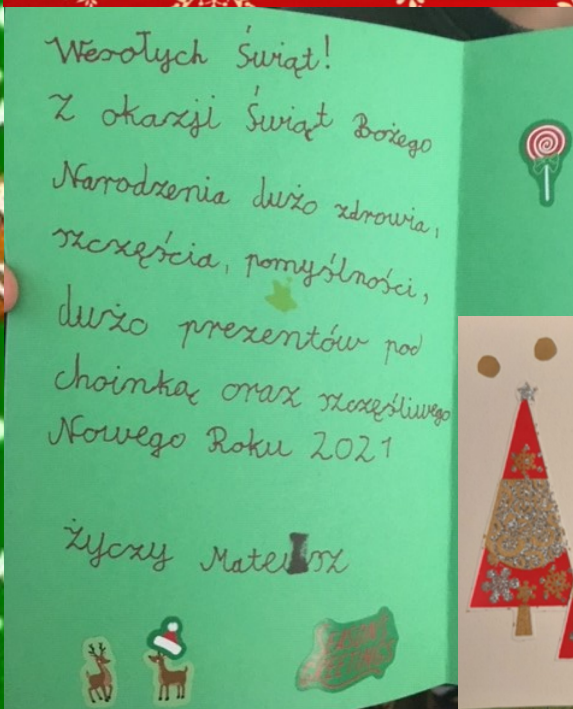 Wesołych Świąt!
Z okazji Świąt Bożego
Narodzenia dużo zdrowia,
szczęścia, pomyślności,
dużo prezentów pod
choinką oraz szczęśliwego
Nowego Roku 2021
Życzy Mateusz
SEASON'S
GREETINGS